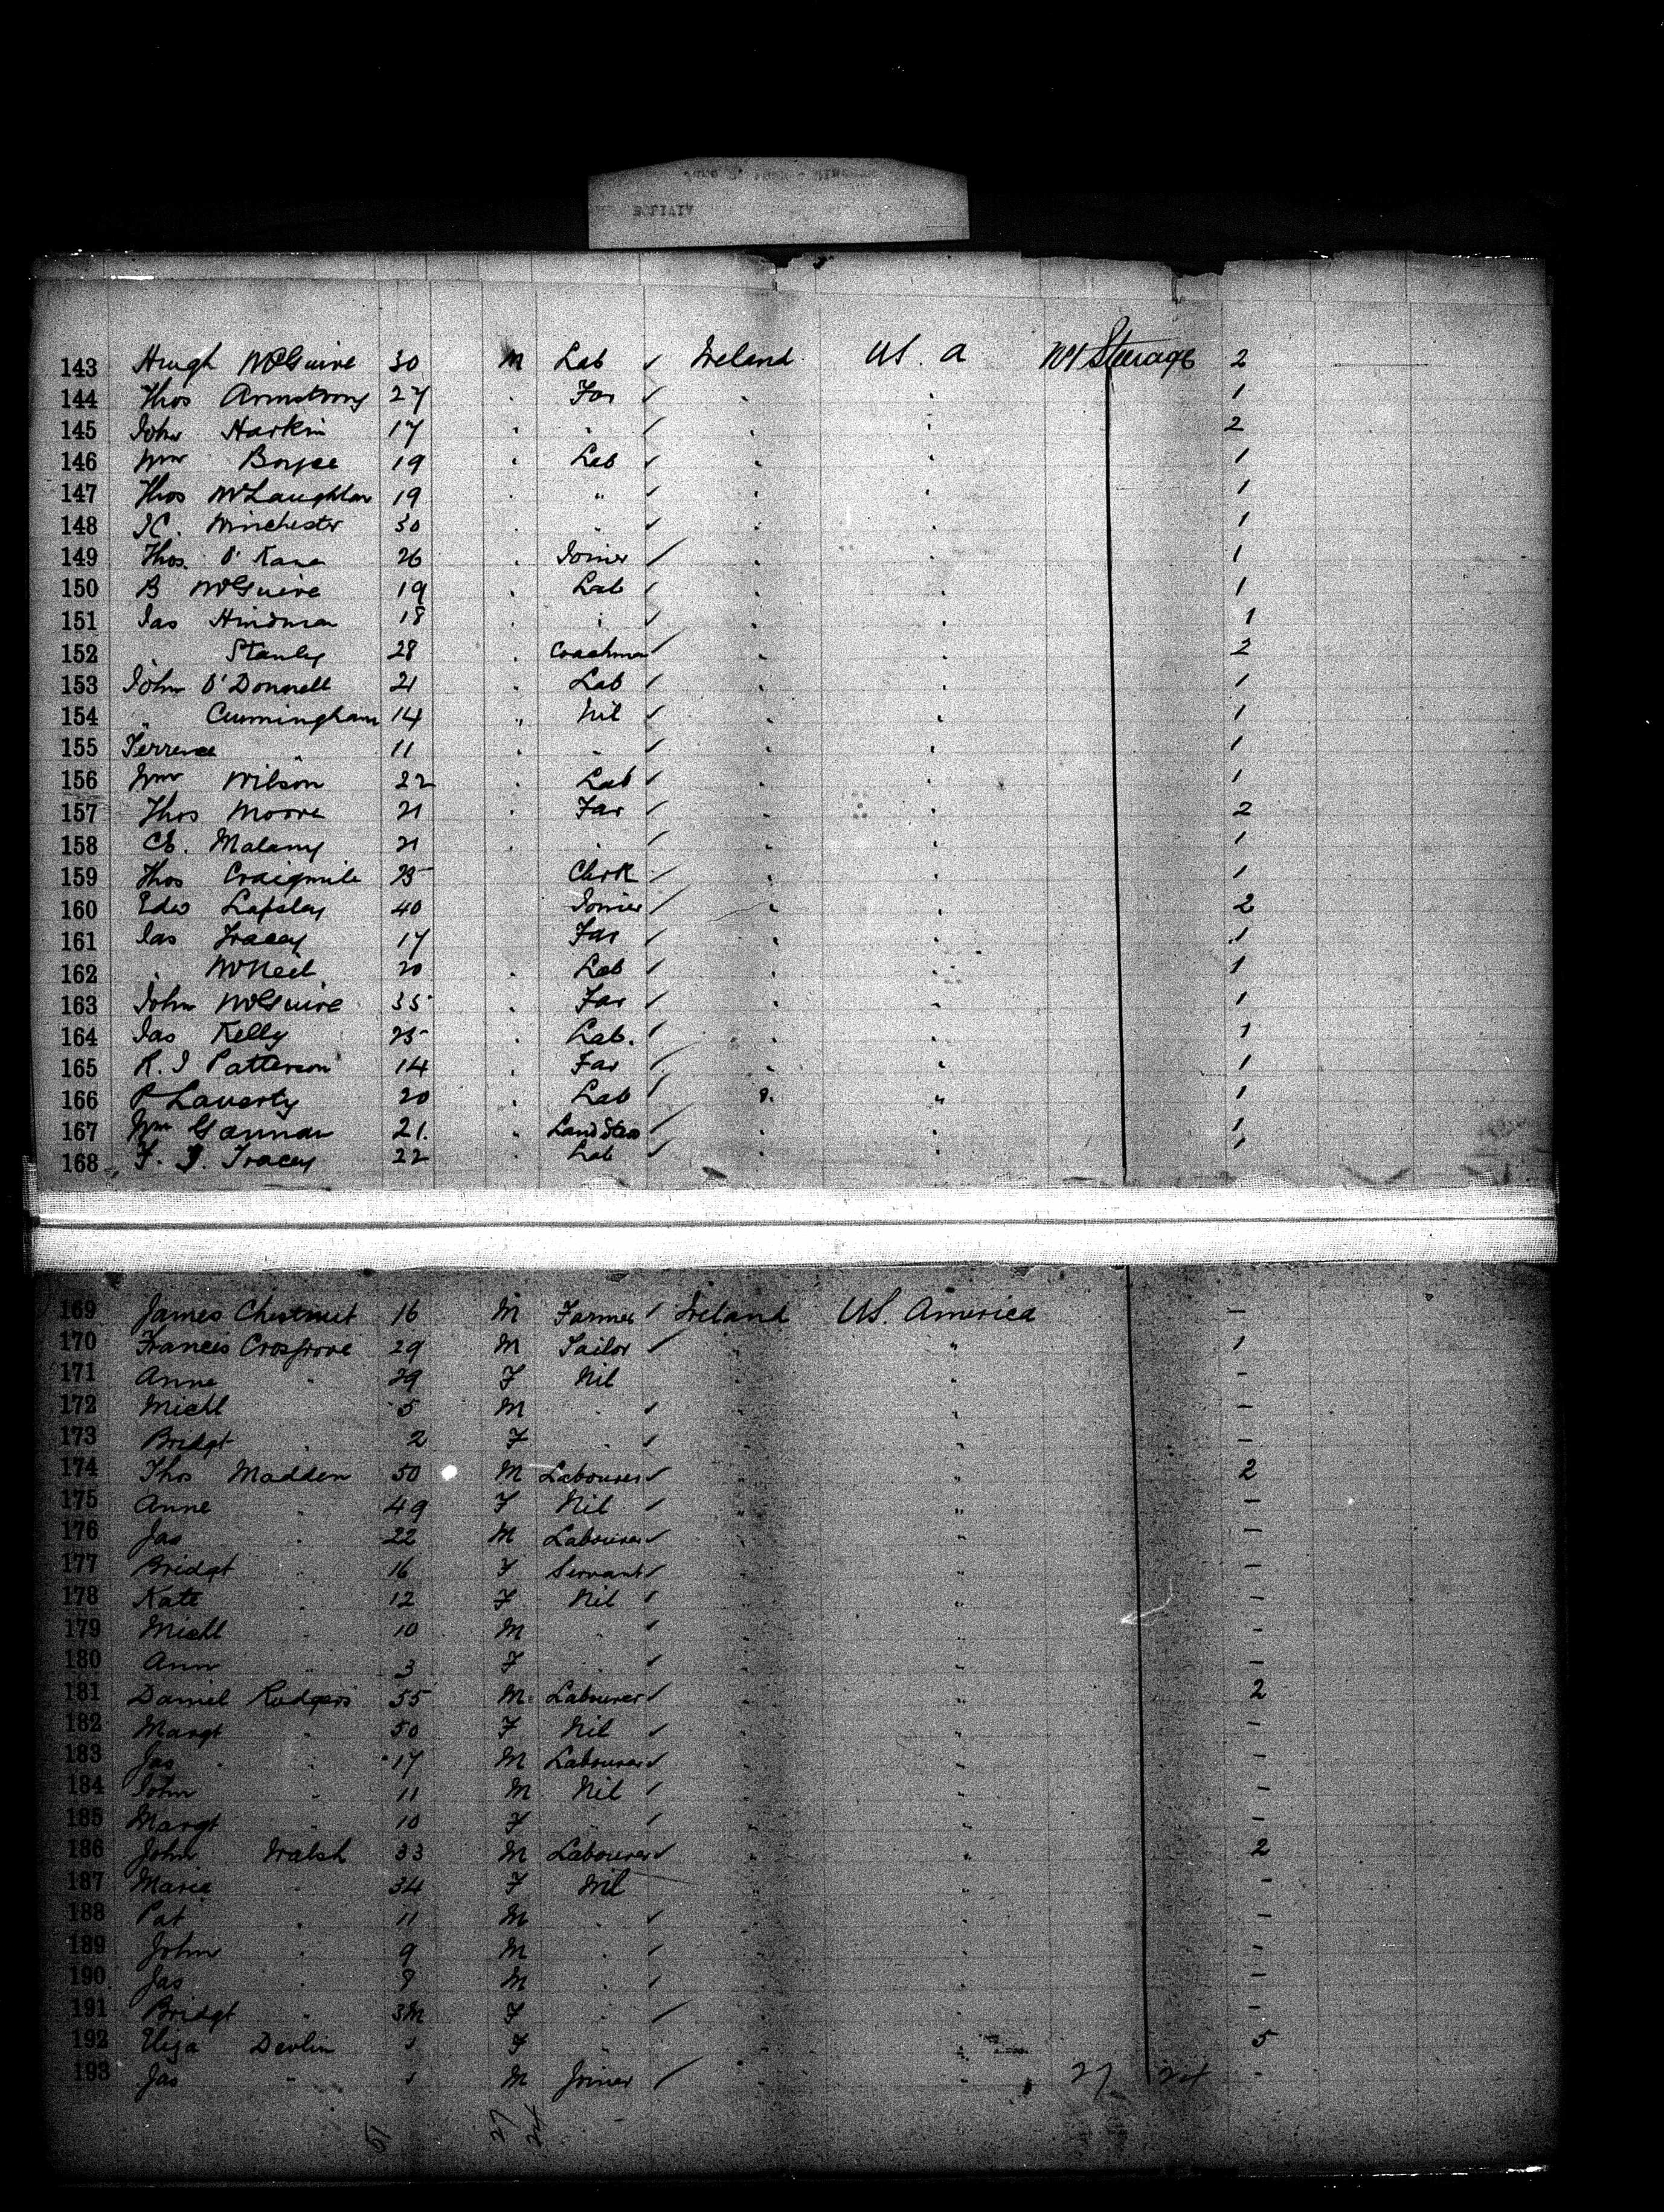 143 Hugh McGuire 30 M Lab ✓ Ireland US. A NY Steerage 2
144 Thos Armstrong 27 . Far ✓ . . 1
145 John Harkin 17 . . ✓ . . 2
146 Wm Boyce 19 . Lab ✓ . . 1
147 Thos McLaughlan 19 . " ✓ . . 1
148 JC. Winchester 30 . " ✓ . . 1
149 Thos. O'Kane 26 . Joiner ✓ . . 1
150 B McGuire 19 . Lab ✓ . . 1
151 Jas Hindman 18 . . ✓ . . 1
152 Stanley 28 . Coachman ✓ . . 2
153 John O'Donnell 21 . Lab ✓ . . 1
154 " Cunningham 14 " Nil ✓ . . 1
155 Terrence " 11 . . ✓ . . 1
156 Wm Wilson 22 . Lab ✓ . . 1
157 Thos Moore 21 . Far ✓ . . 2
158 CE. Malamy 21 . . ✓ . . 1
159 Thos Craigmile 25 Clerk ✓ . . 1
160 Edw Lapsley 40 Joiner ✓ . . 2
161 Jas Tracey 17 Far ✓ . . 1
162 . McNeil 20 . Lab ✓ . . 1
163 John McGuire 35 . Far ✓ . . 1
164 Jas Kelly 25 . Lab. ✓ . . 1
165 R. J Patterson 14 . Far ✓ . . 1
166 P Laverty 20 . Lab ✓ . " 1
167 Wm Gannan 21. " Land Stew ✓ . . 1
168 F. J. Tracey 22 . Lab ✓ . . 1
169 James Chestnut 16 M Farmer ✓ Ireland US. America —
170 Francis Crosgrove 29 M Tailor ✓ " " 1
171 Anne " 29 F Nil " " -
172 Michl 5 M . ✓ . " -
173 Bridgt . 2 F . ✓ . " —
174 Thos Madden 50 M Labourer ✓ " " 2
175 Anne . 49 F Nil ✓ " " —
176 Jas . 22 M Labourer ✓ . " —
177 Bridgt " 16 F Servant ✓ . " —
178 Kate . 12 F Nil ✓ . " -
179 Michl . 10 M " ✓ . " -
180 Ann " 3 F . ✓ . " —
181 Daniel Rodgers 55 M. Labourer ✓ . " 2
182 Margt " 50 F Nil ✓ . " -
183 Jas . 17 M Labourer ✓ . " -
184 John " 11 M Nil ✓ . " -
185 Margt " 10 F " ✓ " " -
186 John Walsh 33 M Labourer ✓ . " 2
187 Maria . 34 F Nil " " -
188 Pat . 11 M . ✓ . . -
189 John . 9 M . ✓ . . -
190 Jas . 8 M . ✓ . . -
191 Bridgt " 3M F . ✓ . . -
192 Eliza Devlin F " . " 5
193 Jas " M Joiner ✓ . " 27 24 -
51 27 24